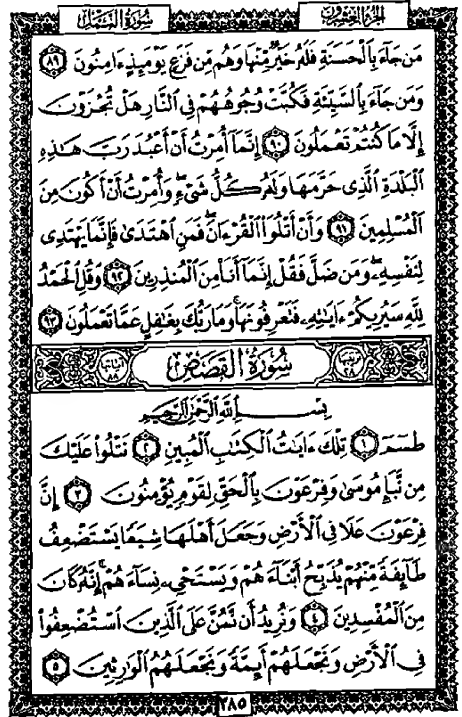 سُورَةُ النَّمْلِ الجُزْءُ العِشْرُونَ
مَن جَآءَ بِٱلْحَسَنَةِ فَلَهُۥ خَيْرٌ مِّنْهَا وَهُم مِّن فَزَعٍ يَوْمَئِذٍ ءَامِنُونَ ٨٩
وَمَن جَآءَ بِٱلسَّيِّئَةِ فَكُبَّتْ وُجُوهُهُمْ فِي ٱلنَّارِ هَلْ تُجْزَوْنَ
إِلَّا مَا كُنتُمْ تَعْمَلُونَ ٩٠ إِنَّمَآ أُمِرْتُ أَنْ أَعْبُدَ رَبَّ هَٰذِهِ
ٱلْبَلْدَةِ ٱلَّذِي حَرَّمَهَا وَلَهُۥ كُلُّ شَيْءٍ وَأُمِرْتُ أَنْ أَكُونَ مِنَ
ٱلْمُسْلِمِينَ ٩١ وَأَنْ أَتْلُوَا۟ ٱلْقُرْءَانَ فَمَنِ ٱهْتَدَىٰ فَإِنَّمَا يَهْتَدِي
لِنَفْسِهِۦ وَمَن ضَلَّ فَقُلْ إِنَّمَآ أَنَا۠ مِنَ ٱلْمُنذِرِينَ ٩٢ وَقُلِ ٱلْحَمْدُ
لِلَّهِ سَيُرِيكُمْ ءَايَٰتِهِۦ فَتَعْرِفُونَهَا وَمَا رَبُّكَ بِغَٰفِلٍ عَمَّا تَعْمَلُونَ ٩٣
سُورَةُ القَصَصِ
بِسْمِ ٱللَّهِ ٱلرَّحْمَٰنِ ٱلرَّحِيمِ
طسٓمٓ ١ تِلْكَ ءَايَٰتُ ٱلْكِتَٰبِ ٱلْمُبِينِ ٢ نَتْلُوا۟ عَلَيْكَ
مِن نَّبَإِ مُوسَىٰ وَفِرْعَوْنَ بِٱلْحَقِّ لِقَوْمٍ يُؤْمِنُونَ ٣ إِنَّ
فِرْعَوْنَ عَلَا فِي ٱلْأَرْضِ وَجَعَلَ أَهْلَهَا شِيَعًا يَسْتَضْعِفُ
طَآئِفَةً مِّنْهُمْ يُذَبِّحُ أَبْنَآءَهُمْ وَيَسْتَحْيِۦ نِسَآءَهُمْ إِنَّهُۥ كَانَ
مِنَ ٱلْمُفْسِدِينَ ٤ وَنُرِيدُ أَن نَّمُنَّ عَلَى ٱلَّذِينَ ٱسْتُضْعِفُوا۟
فِي ٱلْأَرْضِ وَنَجْعَلَهُمْ أَئِمَّةً وَنَجْعَلَهُمُ ٱلْوَٰرِثِينَ ٥
٣٨٥